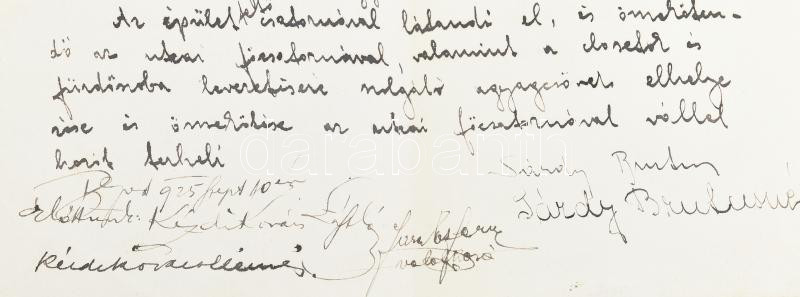 Az épület csatornával látandó el, és összekötten-
dő az utcai főcsatornával, valamint a closetok és
fürdőszoba levezetésére szolgáló agyagcsövek elhelye
zése és összekötése az utcai főcsatornával vállal
kozót terheli
Bpest 925 szept 10 én
Sárdy Brutus
Előttünk: Kézdi Kovács László
Sárdy Brutusné
Kézdi Kovács Lászlóné
darabanth